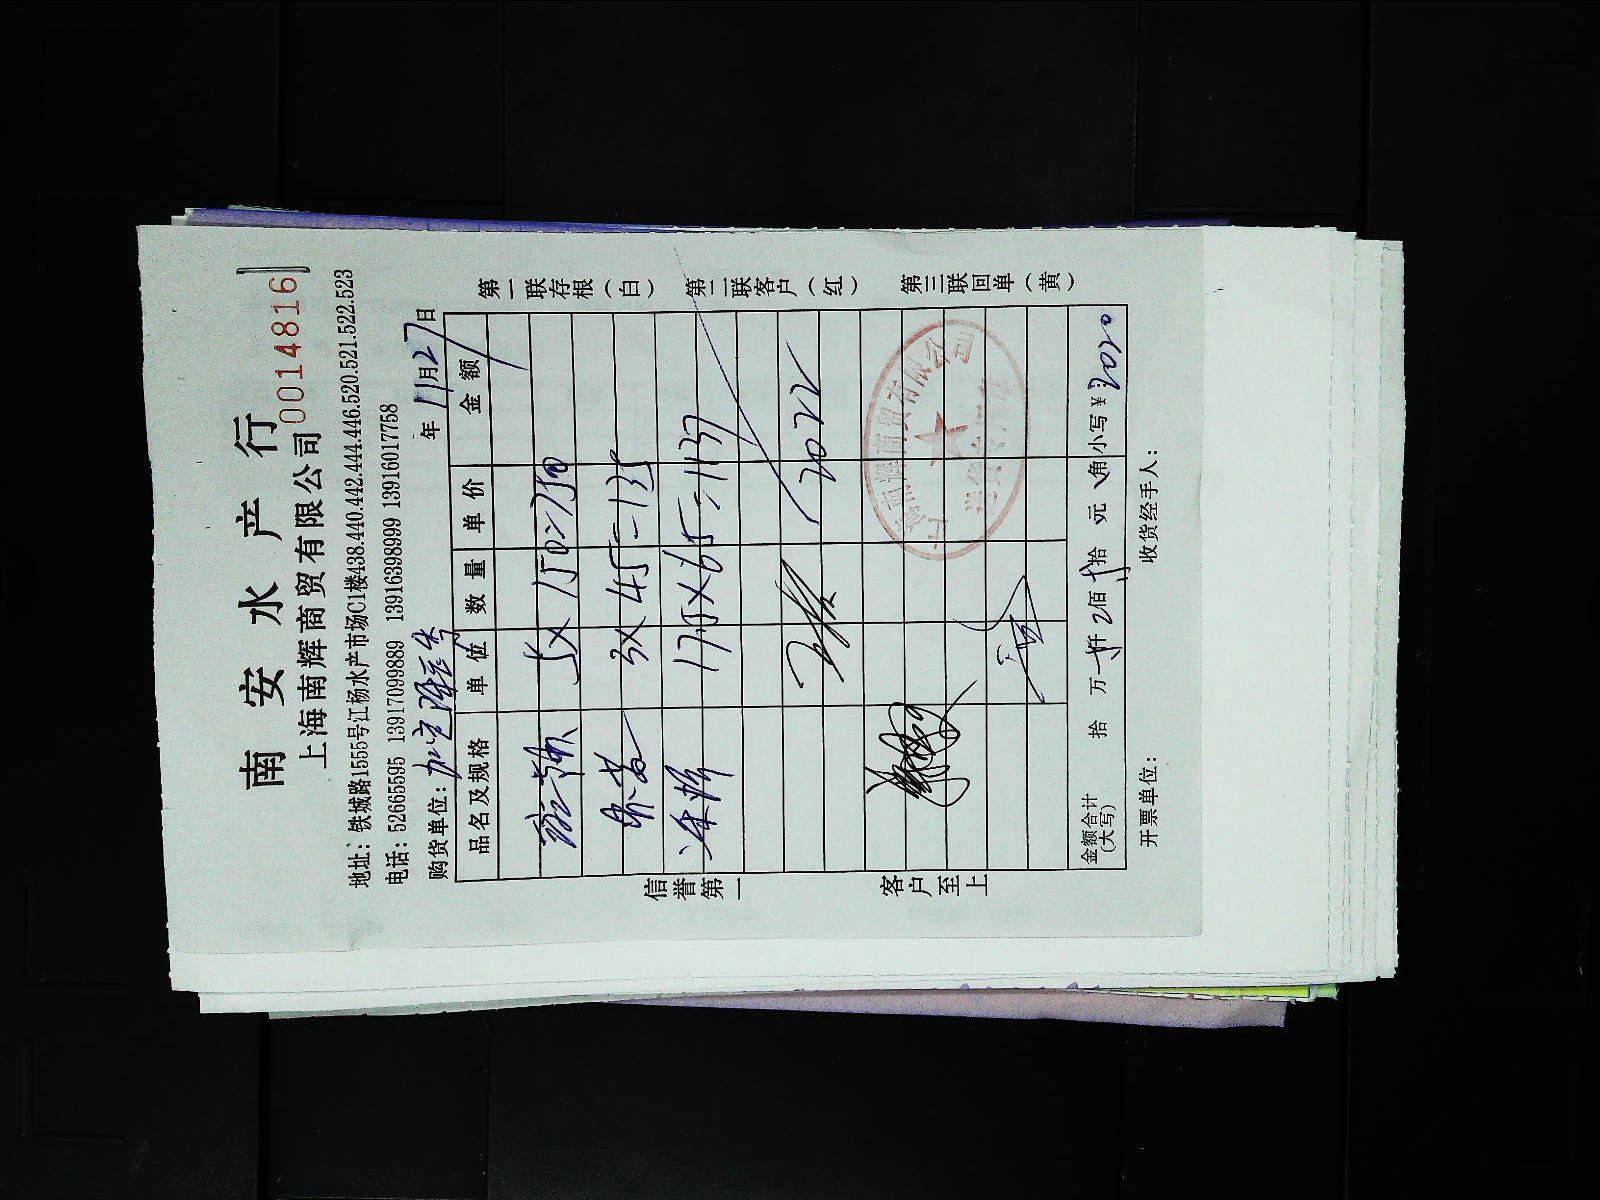 南 安 水 产 行
上海南辉商贸有限公司
0014816
地址：铁城路1555号江杨水产市场C1楼438.440.442.444.446.520.521.522.523
电话：52665595 13917099889 13916398999 13916017758
购货单位：
年 11月27日
品名及规格 单位 数量 单价 金额
5X150=750
3X45=135
17.5X65=1137
2022
信誉第一
客户至上
第一联存根（白） 第二联客户（红） 第三联回单（黄）
金额合计(大写) 拾 万 仟 佰 拾 元 角 小写¥
开票单位： 收货经手人：